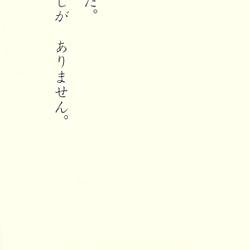 た。
しが　ありません。